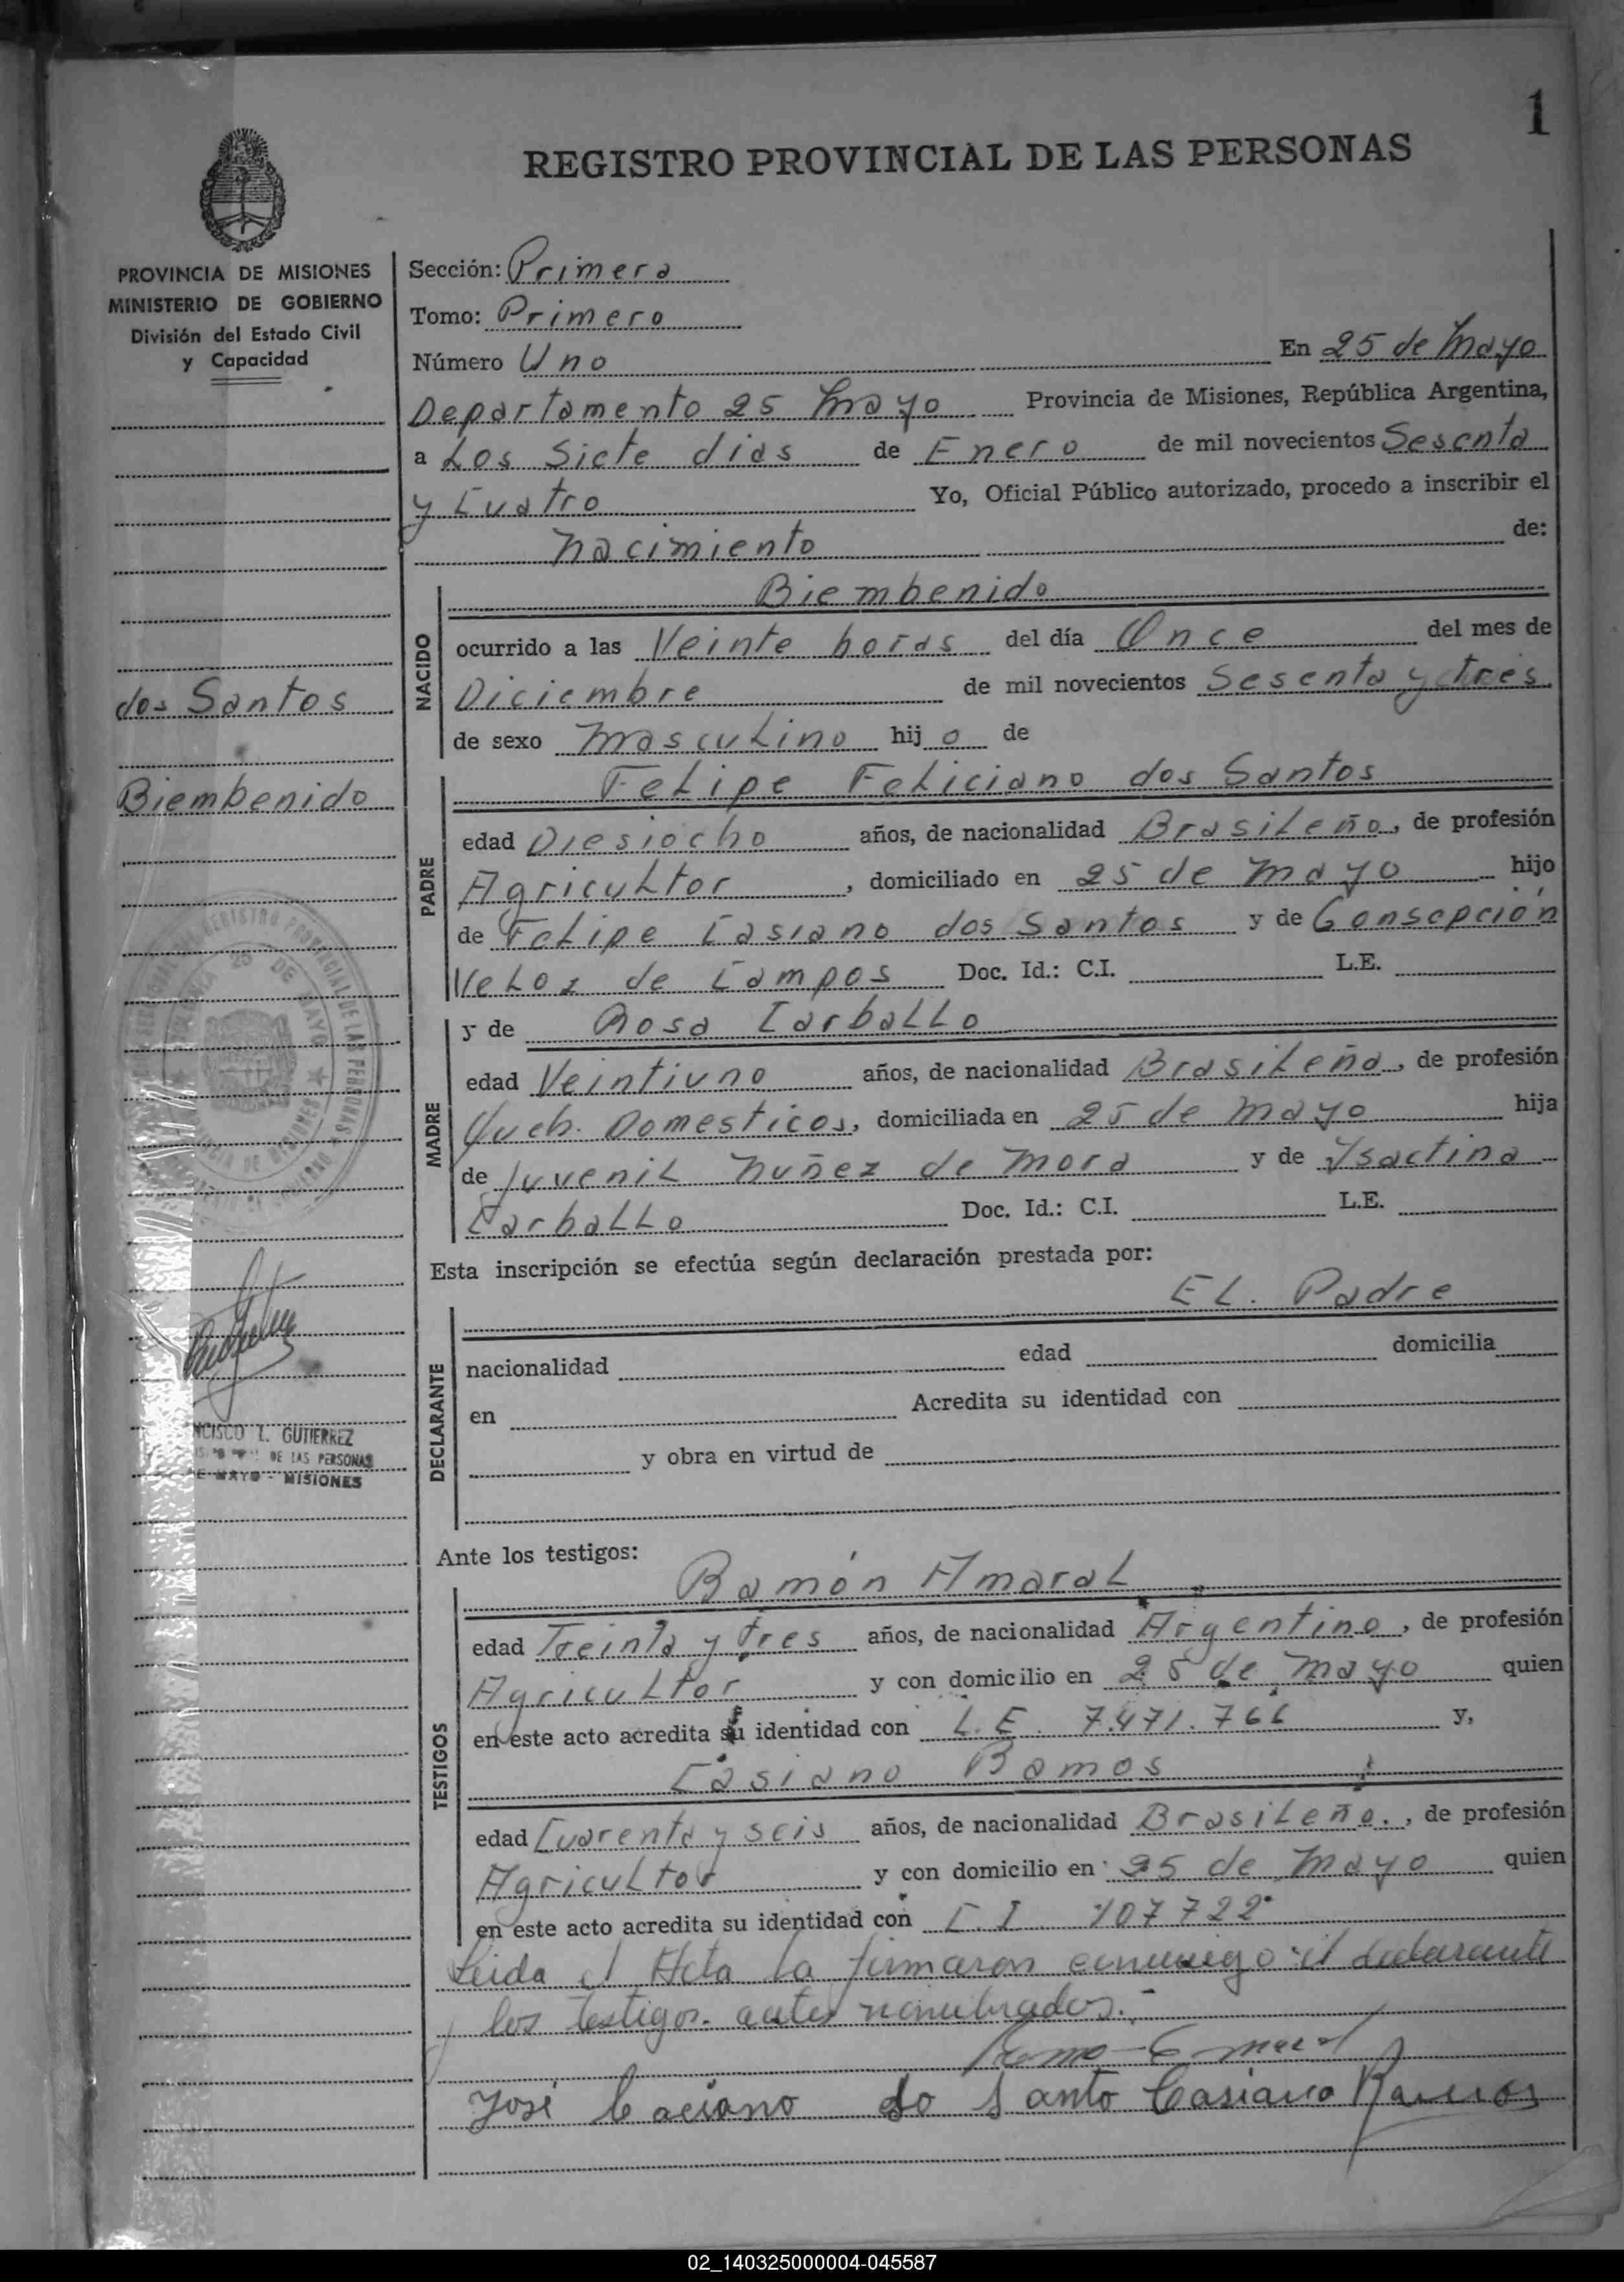 1
REGISTRO PROVINCIAL DE LAS PERSONAS
PROVINCIA DE MISIONES
MINISTERIO DE GOBIERNO
División del Estado Civil
y Capacidad
dos Santos
Biembenido
GUTIERREZ
DE LAS PERSONAS
MAYO - MISIONES
Sección: Primera
Tomo: Primero
Número Uno En 25 de Mayo
Departamento 25 Mayo Provincia de Misiones, República Argentina,
a Los Siete dias de Enero de mil novecientos Sesenta
y Cuatro Yo, Oficial Público autorizado, procedo a inscribir el
Nacimiento de:
NACIDO
Biembenido
ocurrido a las Veinte horas del día Once del mes de
Diciembre de mil novecientos Sesenta y tres
de sexo Masculino hij o de
PADRE
Felipe Feliciano dos Santos
edad Diesiocho años, de nacionalidad Brasileño, de profesión
Agricultor, domiciliado en 25 de Mayo hijo
de Felipe Casiano dos Santos y de Consepción
Veloz de Campos Doc. Id.: C.I. L.E.
MADRE
y de Rosa Carballo
edad Veintiuno años, de nacionalidad Brasileña, de profesión
Queh. Domesticos, domiciliada en 25 de Mayo hija
de Juvenil Nuñez de Mora y de Ysactina
Carballo Doc. Id.: C.I. L.E.
Esta inscripción se efectúa según declaración prestada por:
DECLARANTE
EL. Padre
nacionalidad edad domicilia
en Acredita su identidad con
y obra en virtud de
Ante los testigos:
TESTIGOS
Ramón Amaral
edad Treinta y tres años, de nacionalidad Argentino, de profesión
Agricultor y con domicilio en 25 de Mayo quien
en este acto acredita su identidad con L.E. 7.471.766 y,
Casiano Ramos
edad Cuarenta y seis años, de nacionalidad Brasileño., de profesión
Agricultor y con domicilio en 25 de Mayo quien
en este acto acredita su identidad con C.I. 107722
Leida el Acta la firmaron conmigo el declarante
y los testigos antes nombrados.-
José Caciano do Santo Casiano Ramos
02_140325000004-045587